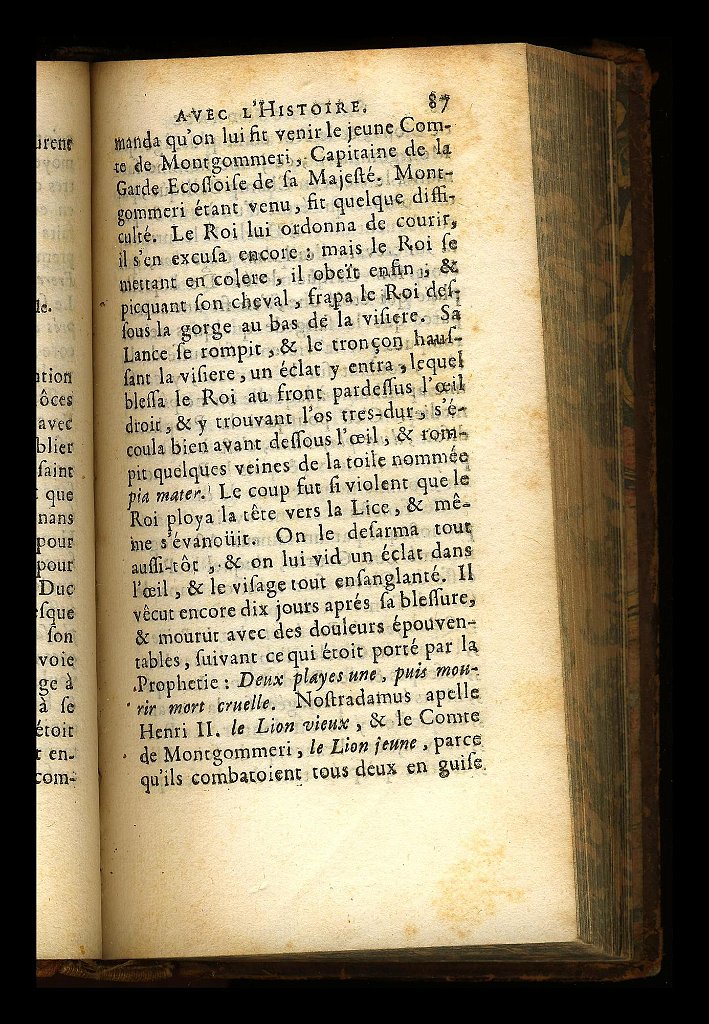 AVEC L'HISTOIRE. 87
manda qu'on lui fit venir le jeune Com-
te de Montgommeri, Capitaine de la
Garde Ecoſſoiſe de ſa Majeſté. Mont-
gommeri étant venu, fit quelque diffi-
culté. Le Roi lui ordonna de courir,
il s'en excuſa encore; mais le Roi ſe
mettant en colere, il obeït enfin; &
picquant ſon cheval, frapa le Roi deſ-
ſous la gorge au bas de la viſiere. Sa
Lance ſe rompit, & le tronçon hauſ-
ſant la viſiere, un éclat y entra, lequel
bleſſa le Roi au front pardeſſus l'œil
droit, & y trouvant l'os tres-dur, s'é-
coula bien avant deſſous l'œil, & rom-
pit quelques veines de la toile nommée
pia mater. Le coup fut ſi violent que le
Roi ploya la tête vers la Lice, & mê-
me s'évanoüit. On le deſarma tout
auſſi-tôt, & on lui vid un éclat dans
l'œil, & le viſage tout enſanglanté. Il
vêcut encore dix jours aprés ſa bleſſure,
& mourut avec des douleurs épouven-
tables, ſuivant ce qui étoit porté par la
Prophetie: Deux playes une, puis mou-
rir mort cruelle. Noſtradamus apelle
Henri II. le Lion vieux, & le Comte
de Montgommeri, le Lion jeune, parce
qu'ils combatoient tous deux en guiſe